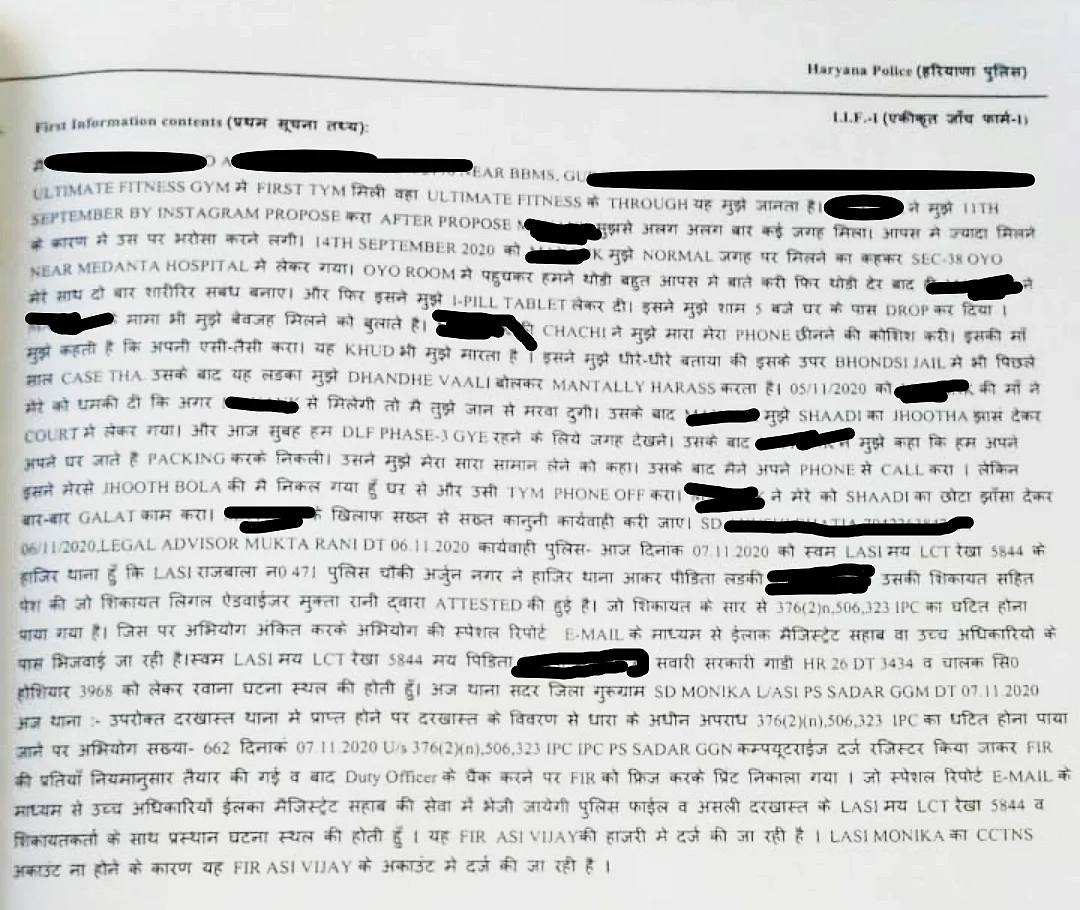 Haryana Police (हरियाणा पुलिस)
First Information contents (प्रथम सूचना तथ्य):
I.I.F.-I (एकीकृत जाँच फार्म-I)
मै NEAR BBMS,
ULTIMATE FITNESS GYM मे FIRST TYM मिली वहा ULTIMATE FITNESS के THROUGH यह मुझे जानता है। ने मुझे 11TH
SEPTEMBER BY INSTAGRAM PROPOSE करा AFTER PROPOSE मुझसे अलग अलग बार कई जगह मिला। आपस मे ज्यादा मिलने
के कारण मे उस पर भरोसा करने लगी। 14TH SEPTEMBER 2020 को मुझे NORMAL जगह पर मिलने का कहकर SEC-38 OYO
NEAR MEDANTA HOSPITAL मे लेकर गया। OYO ROOM मे पहुचकर हमने थोडी बहुत आपस मे बाते करी फिर थोडी देर बाद ने
मेरे साथ दो बार शारीरिर सबंध बनाए। और फिर इसने मुझे I-PILL TABLET लेकर दी। इसने मुझे शाम 5 बजे घर के पास DROP कर दिया ।
के मामा भी मुझे बेवजह मिलने को बुलाते है। की CHACHI ने मुझे मारा मेरा PHONE छीनने की कोशिश करी। इसकी माँ
मुझे कहती है कि अपनी एसी-तैसी करा। यह KHUD भी मुझे मारता है । इसने मुझे धीरे-धीरे बताया की इसके उपर BHONDSI JAIL मे भी पिछले
साल CASE THA. उसके बाद यह लडका मुझे DHANDHE VAALI बोलकर MANTALLY HARASS करता है। 05/11/2020 को की माँ ने
मेरे को धमकी दी कि अगर से मिलेगी तो मै तुझे जान से मरवा दुगी। उसके बाद मुझे SHAADI का JHOOTHA झासं देकर
COURT मे लेकर गया। और आज सुबह हम DLF PHASE-3 GYE रहने के लिये जगह देखने। उसके बाद मुझे कहा कि हम अपने
अपने घर जाते है PACKING करके निकली। उसने मुझे मेरा सारा सामान लेने को कहा। उसके बाद मैने अपने PHONE से CALL करा । लेकिन
इसने मेरसे JHOOTH BOLA की मै निकल गया हूँ घर से और उसी TYM PHONE OFF करा। ने मेरे को SHAADI का छोटा झाँसा देकर
बार-बार GALAT काम करा। के खिलाफ सख्त से सख्त कानुनी कार्यवाही करी जाए। SD
06/11/2020,LEGAL ADVISOR MUKTA RANI DT 06.11.2020 कार्यवाही पुलिस- आज दिनांक 07.11.2020 को स्वम LASI मय LCT रेखा 5844 के
हाजिर थाना हूँ कि LASI राजबाला न0 471 पुलिस चौकी अर्जुन नगर ने हाजिर थाना आकर पीडिता लडकी उसकी शिकायत सहित
पेश की जो शिकायत लिगल ऐडवाईजर मुक्ता रानी द्वारा ATTESTED की हुई है। जो शिकायत के सार से 376(2)n,506,323 IPC का घटित होना
पाया गया है। जिस पर अभियोग अंकित करके अभियोग की स्पेशल रिपोर्ट E-MAIL के माध्यम से ईलाक मैजिस्ट्रेट सहाब वा उच्च अधिकारियो के
पास भिजवाई जा रही है।स्वम LASI मय LCT रेखा 5844 मय पिडिता सवारी सरकारी गाडी HR 26 DT 3434 व चालक सि0
होशियार 3968 को लेकर रवाना घटना स्थल की होती हुँ। अज थाना सदर जिला गुरूग्राम SD MONIKA L/ASI PS SADAR GGM DT 07.11.2020
अज थाना :- उपरोक्त दरखास्त थाना मे प्राप्त होने पर दरखास्त के विवरण से धारा के अधीन अपराध 376(2)(n),506,323 IPC का घटित होना पाया
जाने पर अभियोग सख्या- 662 दिनाकं 07.11.2020 U/s 376(2)(n),506,323 IPC IPC PS SADAR GGN कम्पयूटराईज दर्ज रजिस्टर किया जाकर FIR
की प्रतियाँ नियमानुसार तैयार की गई व बाद Duty Officer के चैक करने पर FIR को फ्रिज करके प्रिट निकाला गया । जो स्पेशल रिपोर्ट E-MAIL के
माध्यम से उच्च अधिकारियों ईलका मैजिस्ट्रेट सहाब की सेवा में भेजी जायेगी पुलिस फाईल व असली दरखास्त के LASI मय LCT रेखा 5844 व
शिकायतकर्ता के साथ प्रस्थान घटना स्थल की होती हुँ । यह FIR ASI VIJAYकी हाजरी मे दर्ज की जा रही है । LASI MONIKA का CCTNS
अकाउंट ना होने के कारण यह FIR ASI VIJAY के अकाउंट मे दर्ज की जा रही है ।